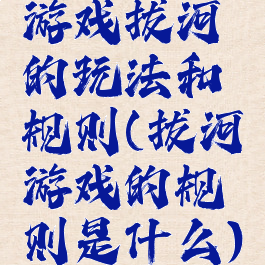 游戏拔河
的玩法和
规则(拔河
游戏的规
则是什么)